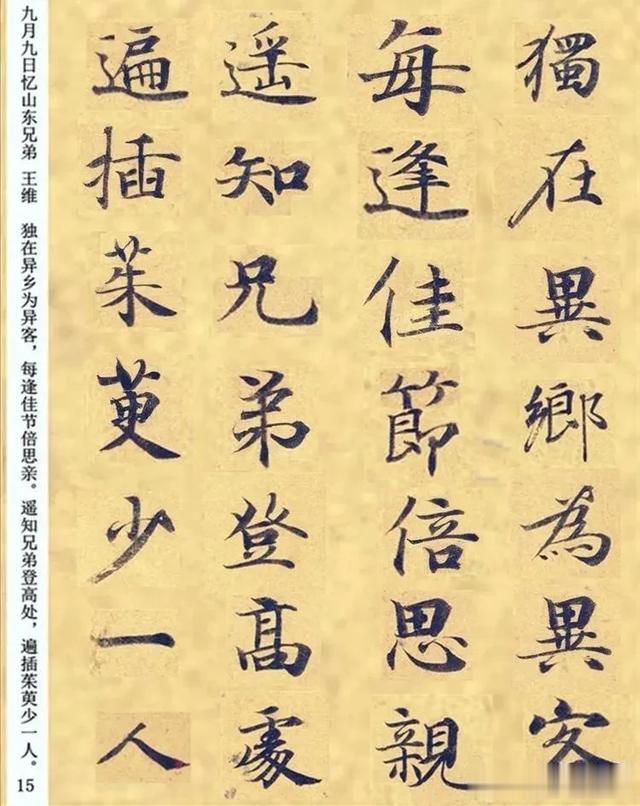 獨在異鄉為異客
每逢佳節倍思親
遥知兄弟登高處
遍插茱萸少一人
九月九日忆山东兄弟 王维 独在异乡为异客，每逢佳节倍思亲。遥知兄弟登高处，遍插茱萸少一人。
15